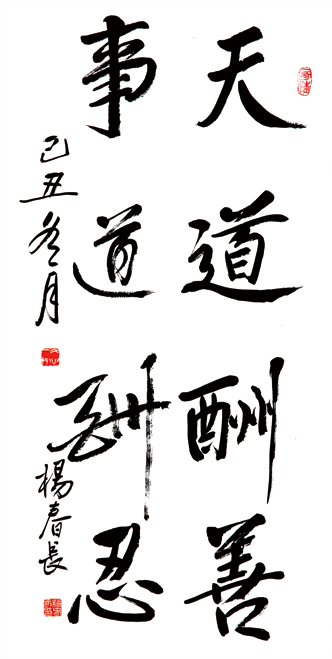 天道酬善
事道酬忍
己丑冬月
楊春長